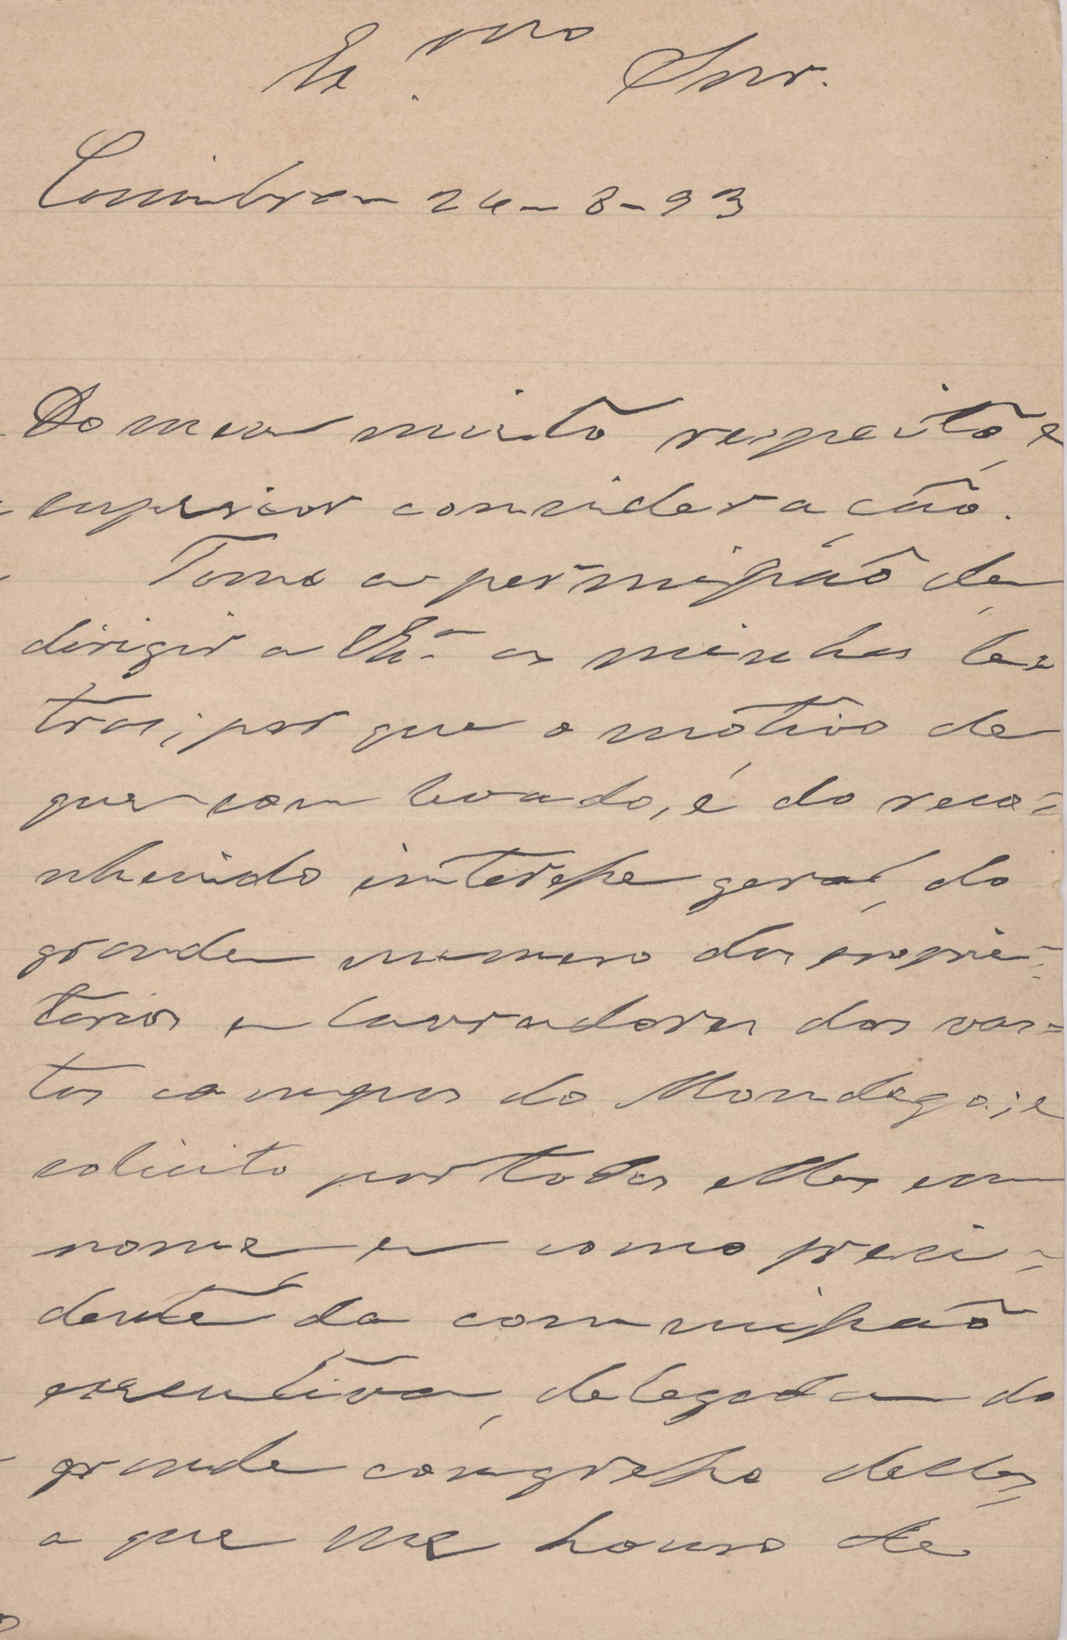 Ex.mo Snr.
Coimbra 24-8-93
Do meu muito respeito, e
superior consideração.
Tomo a permissão de
dirigir a VExª as minhas le=
tras, por que o motivo de
que som levado, é do reco=
nhecido interesse geral, do
grande numero dos proprie=
tarios e lavradores dos vas=
tos campos do Mondego; e
solicito por todos elles em
nome e como presi=
dente da commissão
executiva, delegada do
grande congresso delles,
a que me houro de